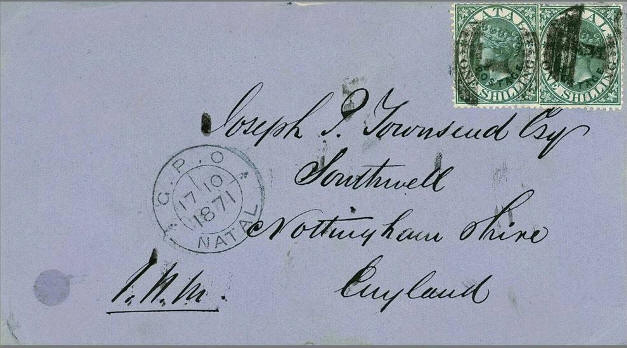 NATAL
POSTAGE
ONE SHILLING
NATAL
POSTAGE
ONE SHILLING
Joseph P. Townsend Esq
Southwell
Nottingham shire
England
G.P.O
17 10
1871
NATAL